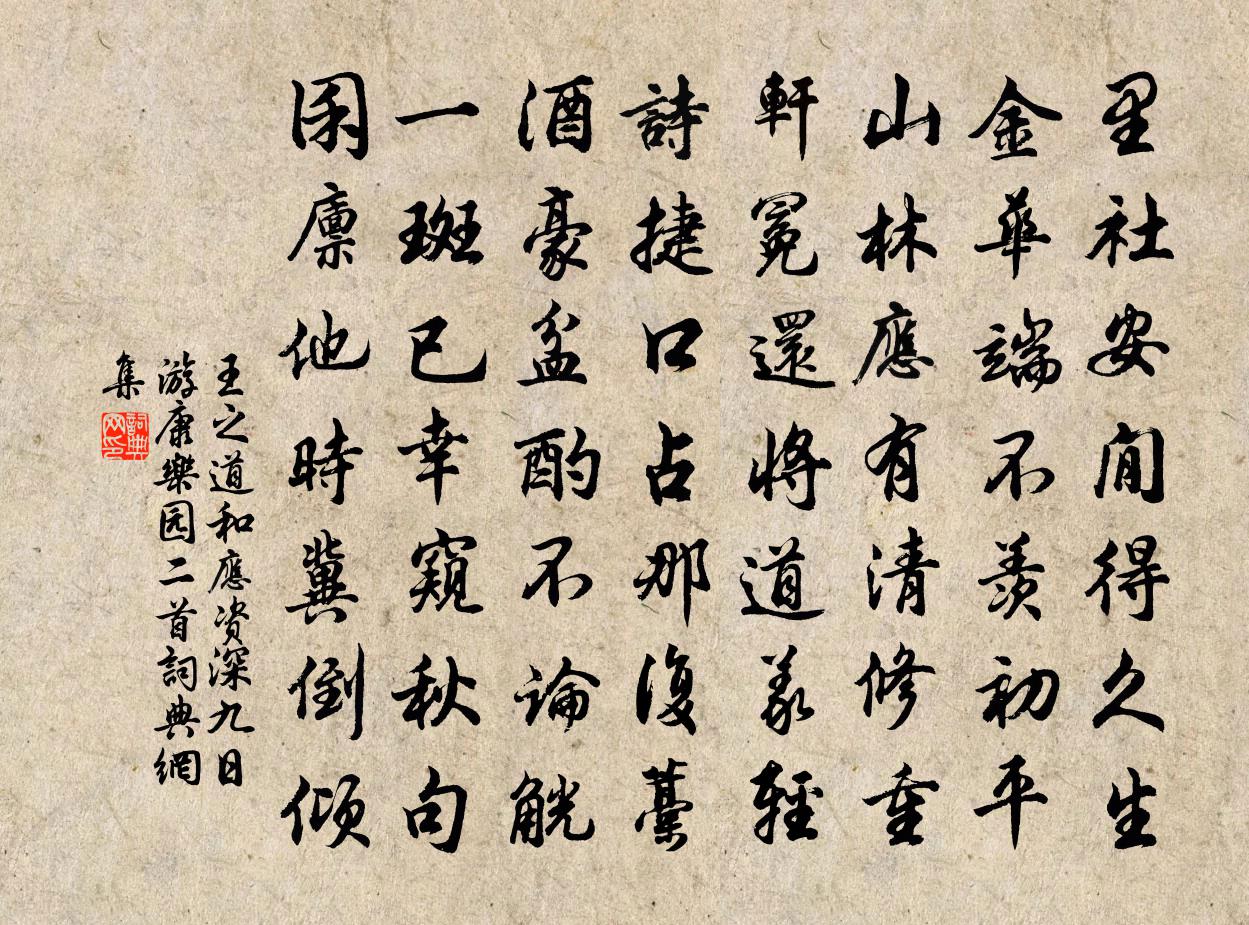 里社安閒得久生
金華端不羨初平
山林應有清修重
軒冕還將道義輕
詩捷口占那復藁
酒豪盆酌不論觥
一斑已幸窺秋句
囷廪他時冀倒傾
王之道和應资深九日
游康樂园二首詞典網
集
詞典网印